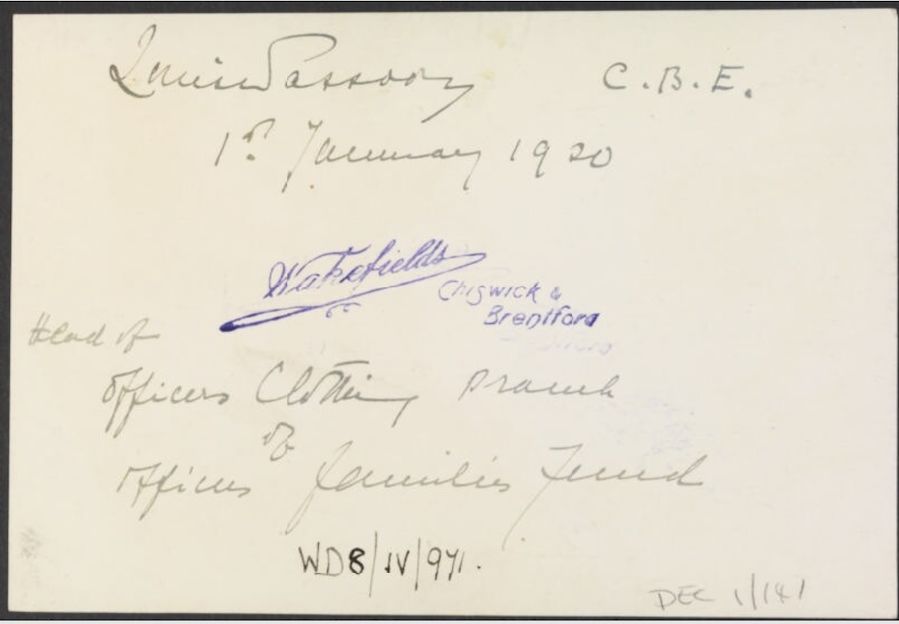 Louise Sassoon C.B.E.
1st January 1920
Wakefields
Chiswick &
Brentford
Head of
Officers Clothing Branch
of
Officers Families Fund
WD8/IV/971.
DEC 1/141